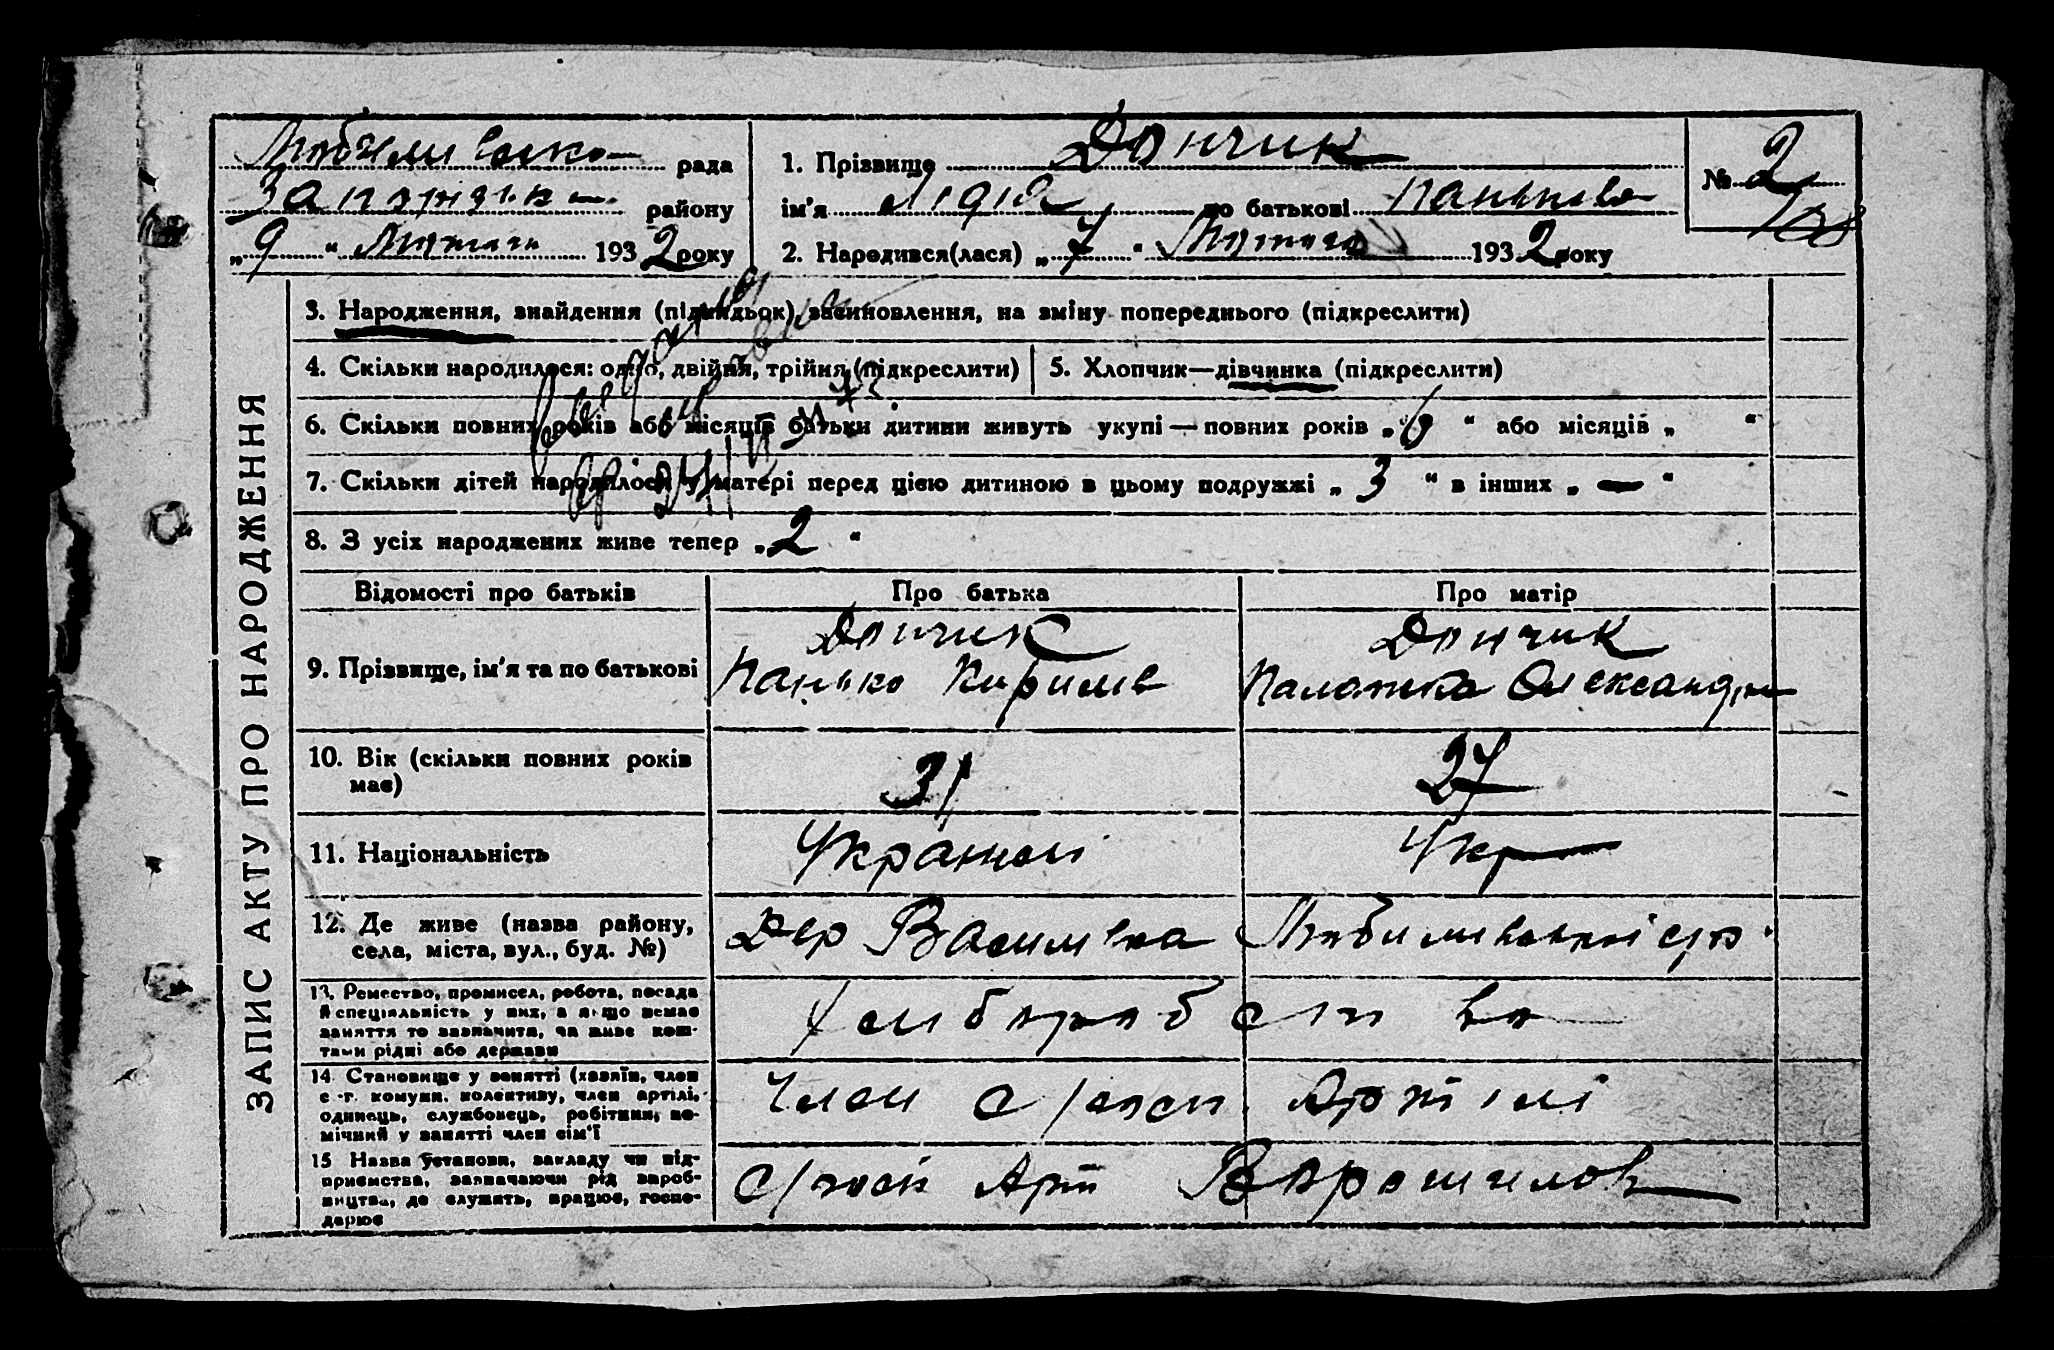 Любимівсько рада
Запоріжжк району
„9“ Лютого 1932 року
1. Прізвище Дончик
ім'я Лідія по батькові Панькова
2. Народився(лася) „7“ Лютого 1932 року
№ 2
108
ЗАПИС АКТУ ПРО НАРОДЖЕННЯ
3. Народження, знайдення (підкидьок), всиновлення, на зміну попереднього (підкреслити)
4. Скільки народилося: одно, двійня, трійня (підкреслити)
5. Хлопчик—дівчинка (підкреслити)
6. Скільки повних років або місяців батьки дитини живуть укупі — повних років „6“ або місяців „ “
7. Скільки дітей народилося у матері перед цією дитиною в цьому подружжі „3“ в інших „—“
8. З усіх народжених живе тепер „2“
Відомості про батьків
Про батька
Про матір
9. Прізвище, ім'я та по батькові
Дончик
Панько Кирилів
Дончик
Палажка Олександр
10. Вік (скільки повних років
має)
31
27
11. Національність
Україн
Укр
12. Де живе (назва району,
села, міста, вул., буд. №)
Дер Василівка Любимівської с/р.
13. Ремество, промисел, робота, посада
й спеціяльність у них, а якщо немає
заняття то зазначити, чи живе кош-
тами рідні або держави
Хліборобство
14. Становище у занятті (хазяїн, член
с.-г. комуни, колективу, член артілі,
одинець, службовець, робітник, по-
мічний у занятті член сім'ї
Член с/госп. Артілі
15 Назва установи, закладу чи під-
приємства, зазначаючи рід вироб-
ництва, де служить, працює, госпо-
дарює
с/госп Арт Ворошилов